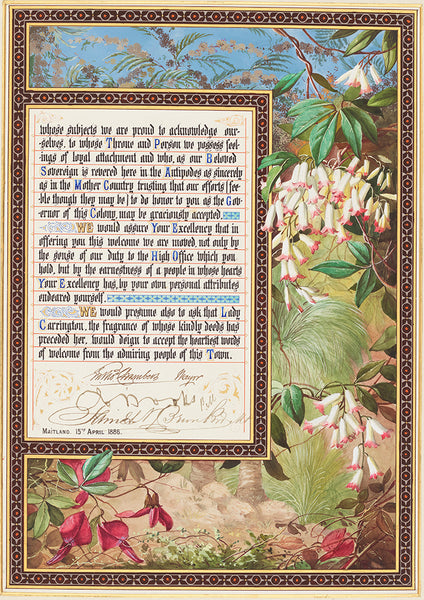 whose subjects we are proud to acknowledge our-
selves, to whose Throne and Person we possess feel-
ings of loyal attachment and who, as our Beloved
Sovereign is revered here in the Antipodes as sincerely
as in the Mother Country, trusting that our efforts [fee-
ble though they may be] to do honor to you as the Gov-
ernor of this Colony, may be graciously accepted.
WE would assure Your Excellency that in
offering you this welcome we are moved, not only by
the sense of our duty to the High Office which you
hold, but by the earnestness of a people in whose hearts
Your Excellency has, by your own personal attributes
endeared yourself.
WE would presume also to ask that Lady
Carrington, the fragrance of whose kindly deeds has
preceded her, would deign to accept the heartiest words
of welcome from the admiring people of this Town.
Chambers Mayor
MAITLAND. 15TH APRIL 1886.